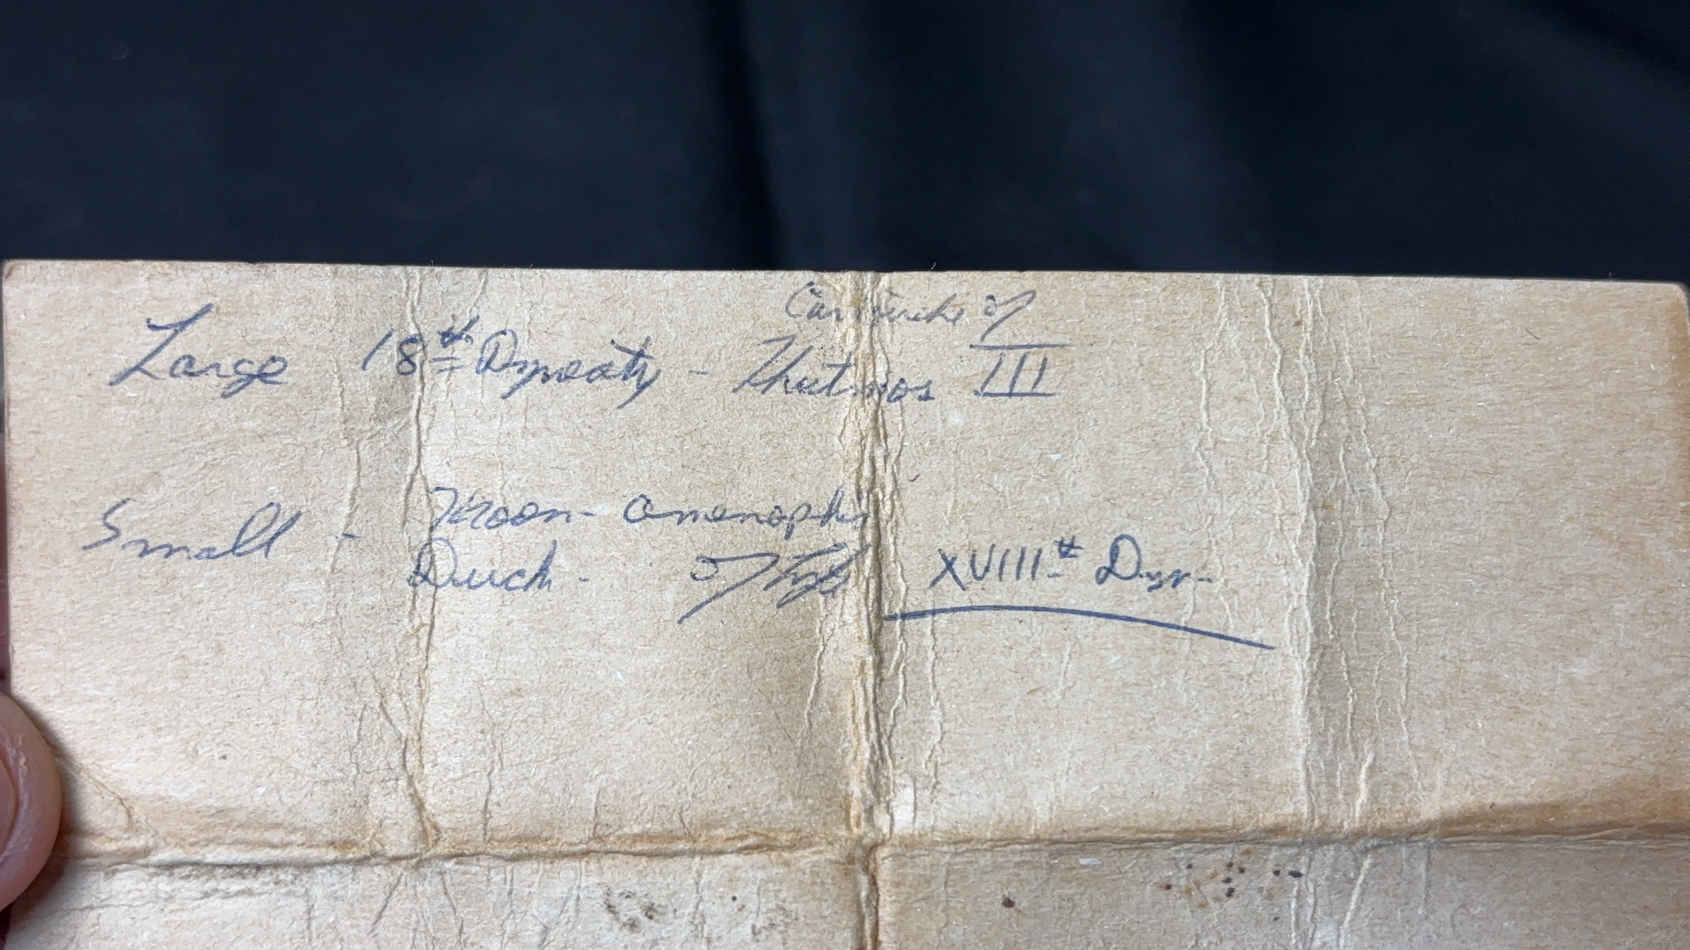 Cartouche of
Large 18th Dynasty - Thutmos III
Small - Moon - Amenophis
Duck - of XVIIIth Dyn.